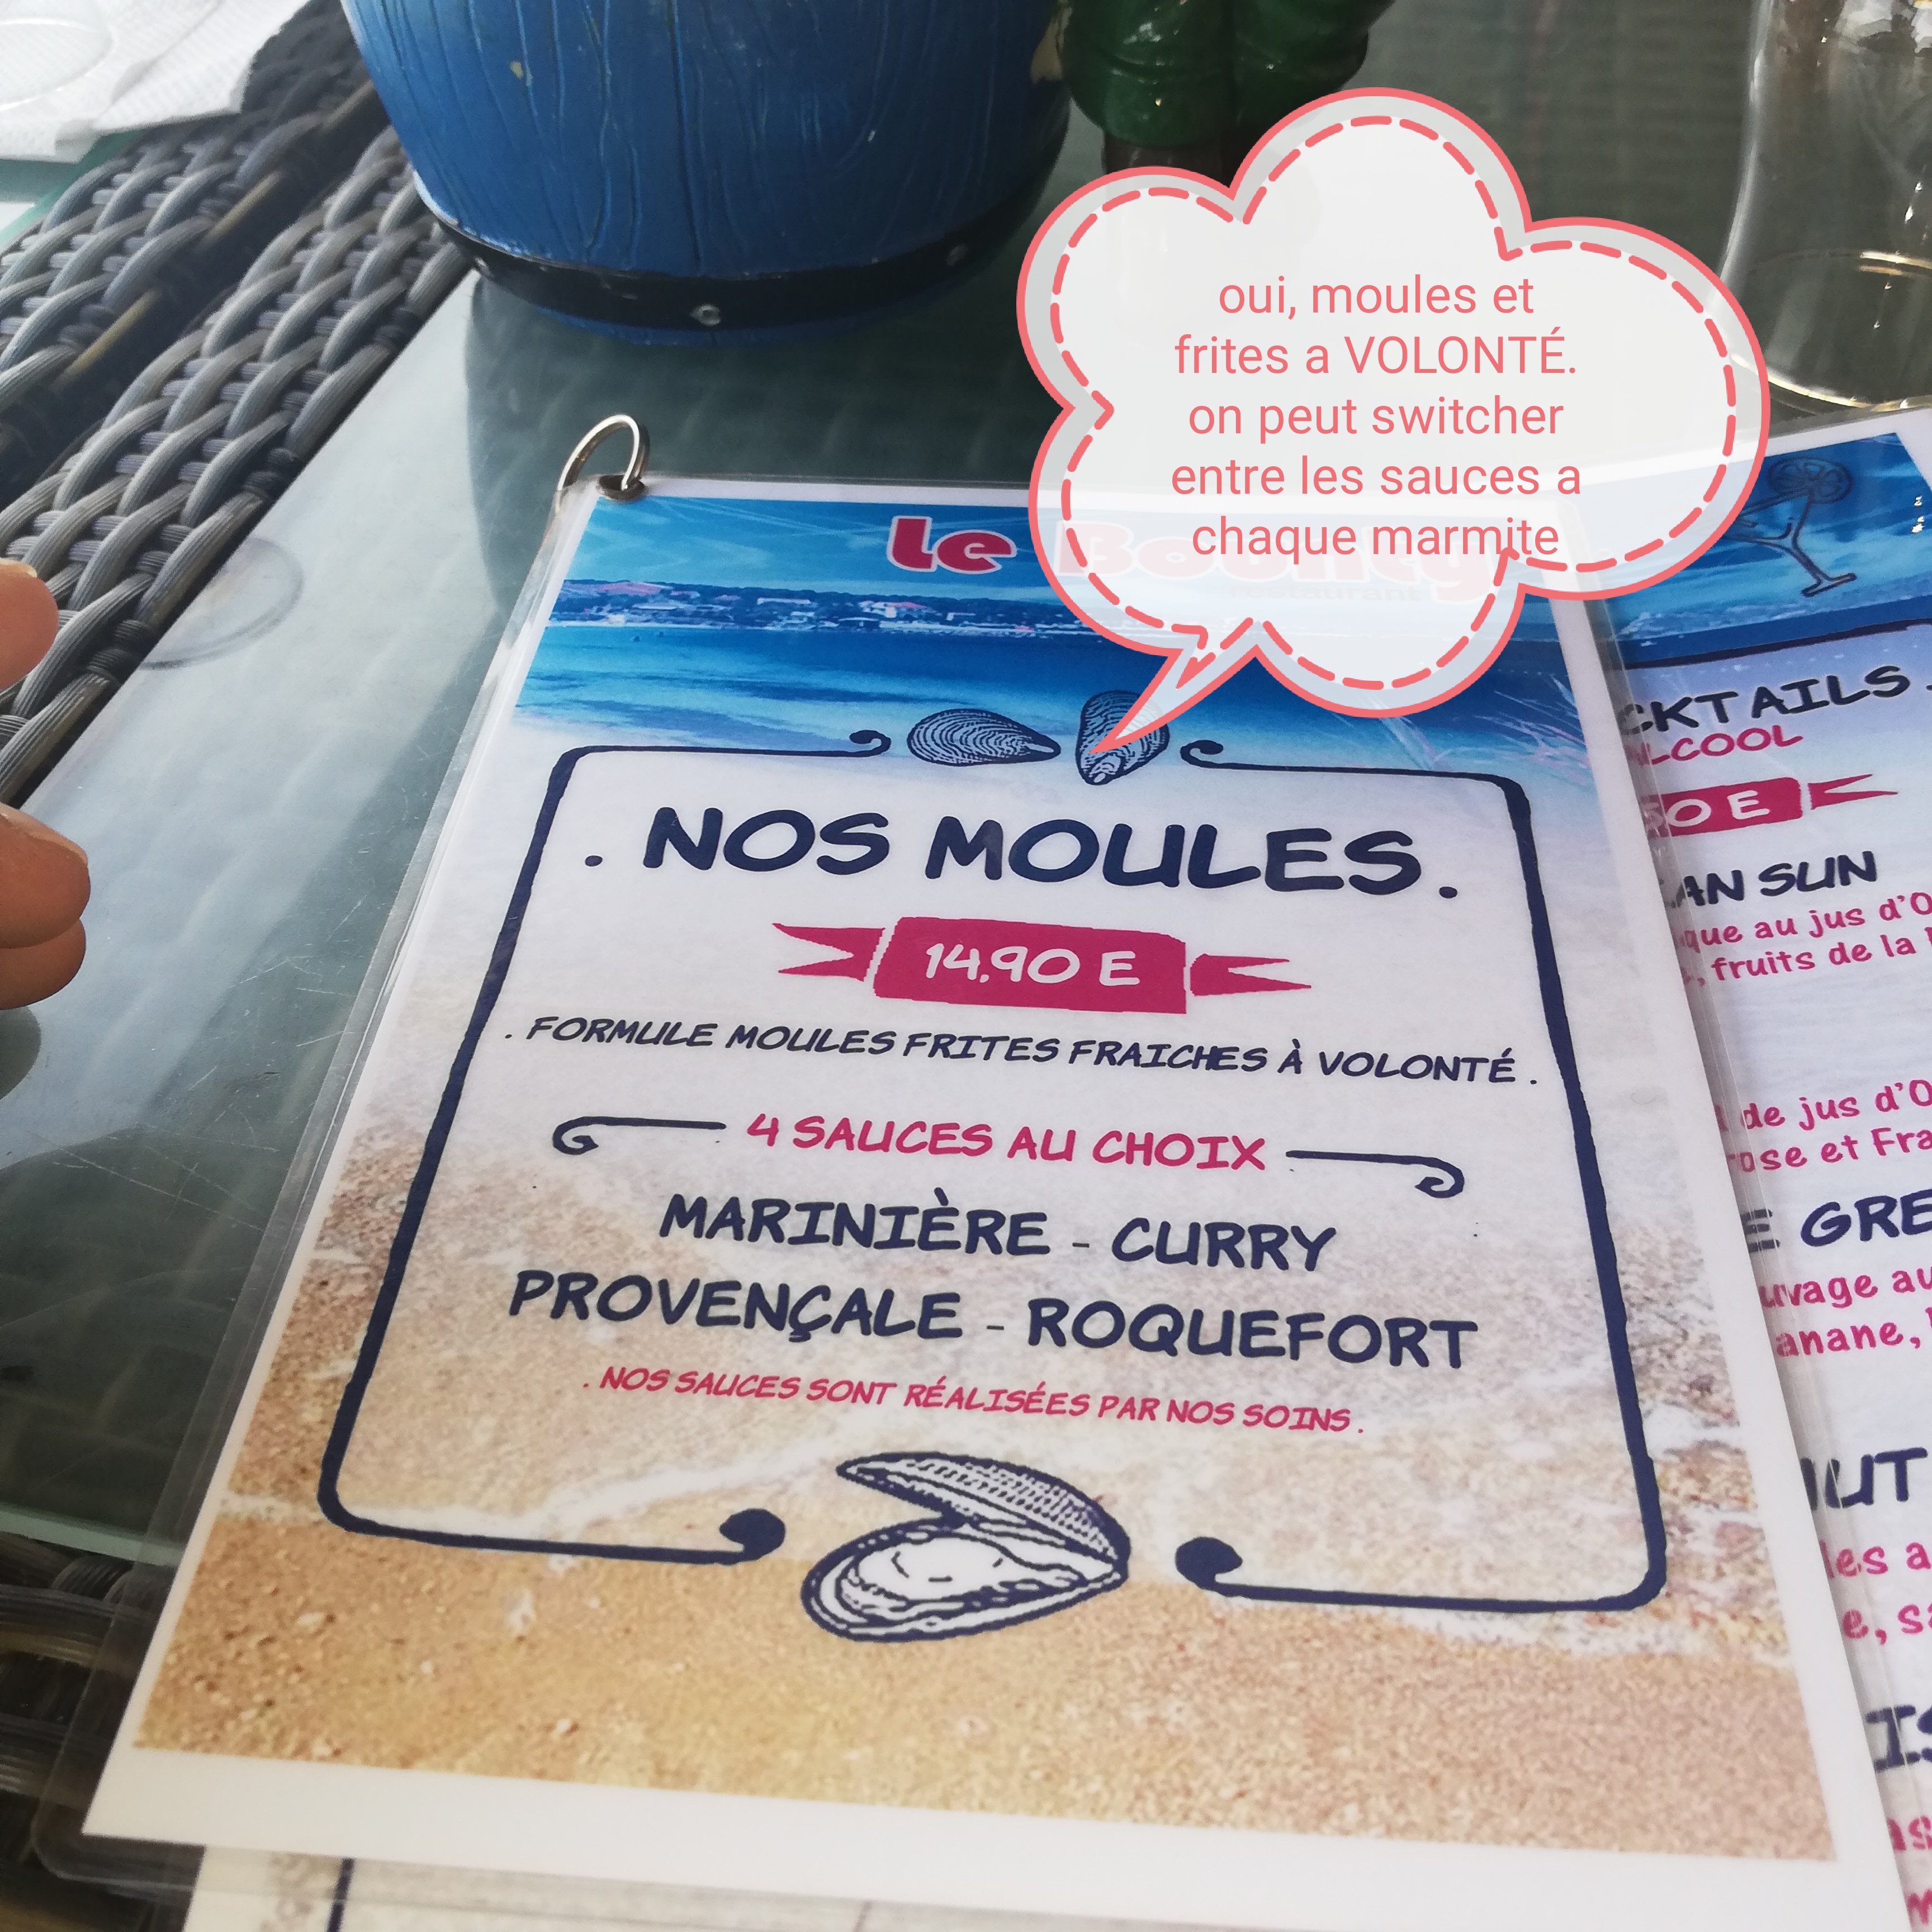 oui, moules et
frites a VOLONTÉ.
on peut switcher
entre les sauces a
chaque marmite
Le Bounty
restaurant
. NOS MOULES.
14,90 E
. FORMULE MOULES FRITES FRAICHES À VOLONTÉ .
4 SAUCES AU CHOIX
MARINIÈRE - CURRY
PROVENÇALE - ROQUEFORT
. NOS SAUCES SONT RÉALISÉES PAR NOS SOINS .
CKTAILS .
ALCOOL
50 E
AN SUN
que au jus d'O
, fruits de la
de jus d'O
ose et Fra
E GRE
uvage au
anane,
UT
les a
e, sa
IS